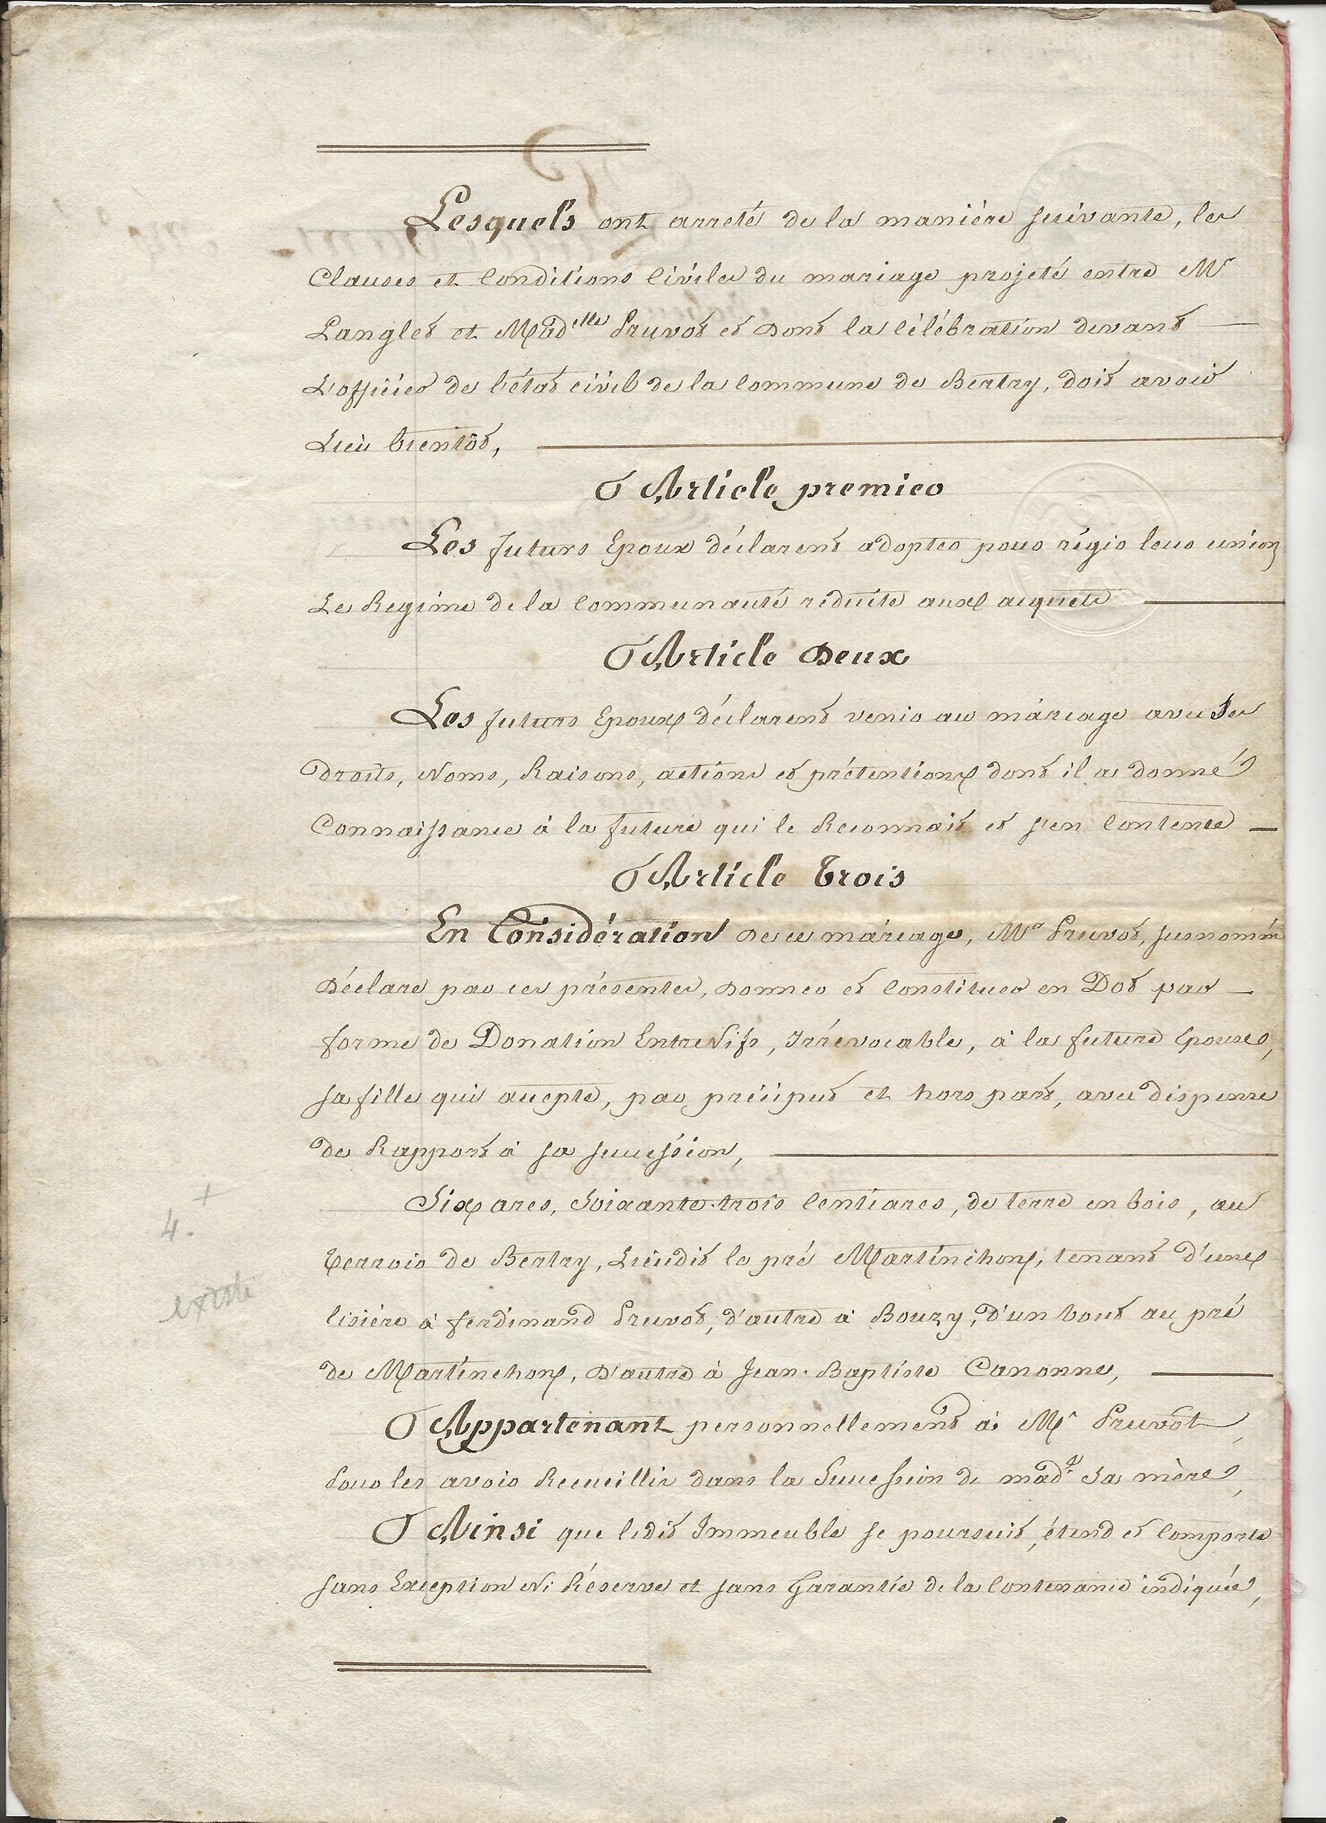 Lesquels ont arreté de la manière suivante, les
Clauses et Conditions Civiles du mariage projeté entre Mr
Langlet et Madelle Pruvot et dont la Célébration devant
L'officier de l'état civil de la Commune de Bertry, doit avoir
Lieu bientôt,
Article premier
Les futurs Epoux déclarent adopter pour régir leur union
Le Regime de la Communauté réduite aux acquêts
Article Deux
Les futurs Epoux déclarent venir au mariage avec Ses
Droits, Noms, Raisons, actions et prétentions dont il a donné
Connaissance à la future qui le Reconnait et s'en Contente
Article Trois
En Considération de ce mariage, Mr Pruvot, susnommé
Déclare par ces présentes, Donner et Constituer en Dot par
forme de Donation Entre Vifs, Irrévocable, à la future Epouse,
sa fille qui accepte, par préciput et hors part, avec dispense
de Rapport à sa succession,
Six ares, Soixante-trois Centiares, de terre en bois, au
Terroir de Bertry, Lieudit le pré Martinchon, tenant d'une
4. +
lisière à ferdinand Pruvot, d'autre à Bouzy, d'un bout au pré
existe
de Martinchon, d'autre à Jean-Baptiste Canonne,
Appartenant personnellement à Mr Pruvot,
Pour les avoir Recueillir dans la Succession de made Sa mère,
Ainsi que ledit Immeuble se poursuit, étend et Comporte
sans Exception Ni Réserve et sans Garantie de la Contenance indiquée,